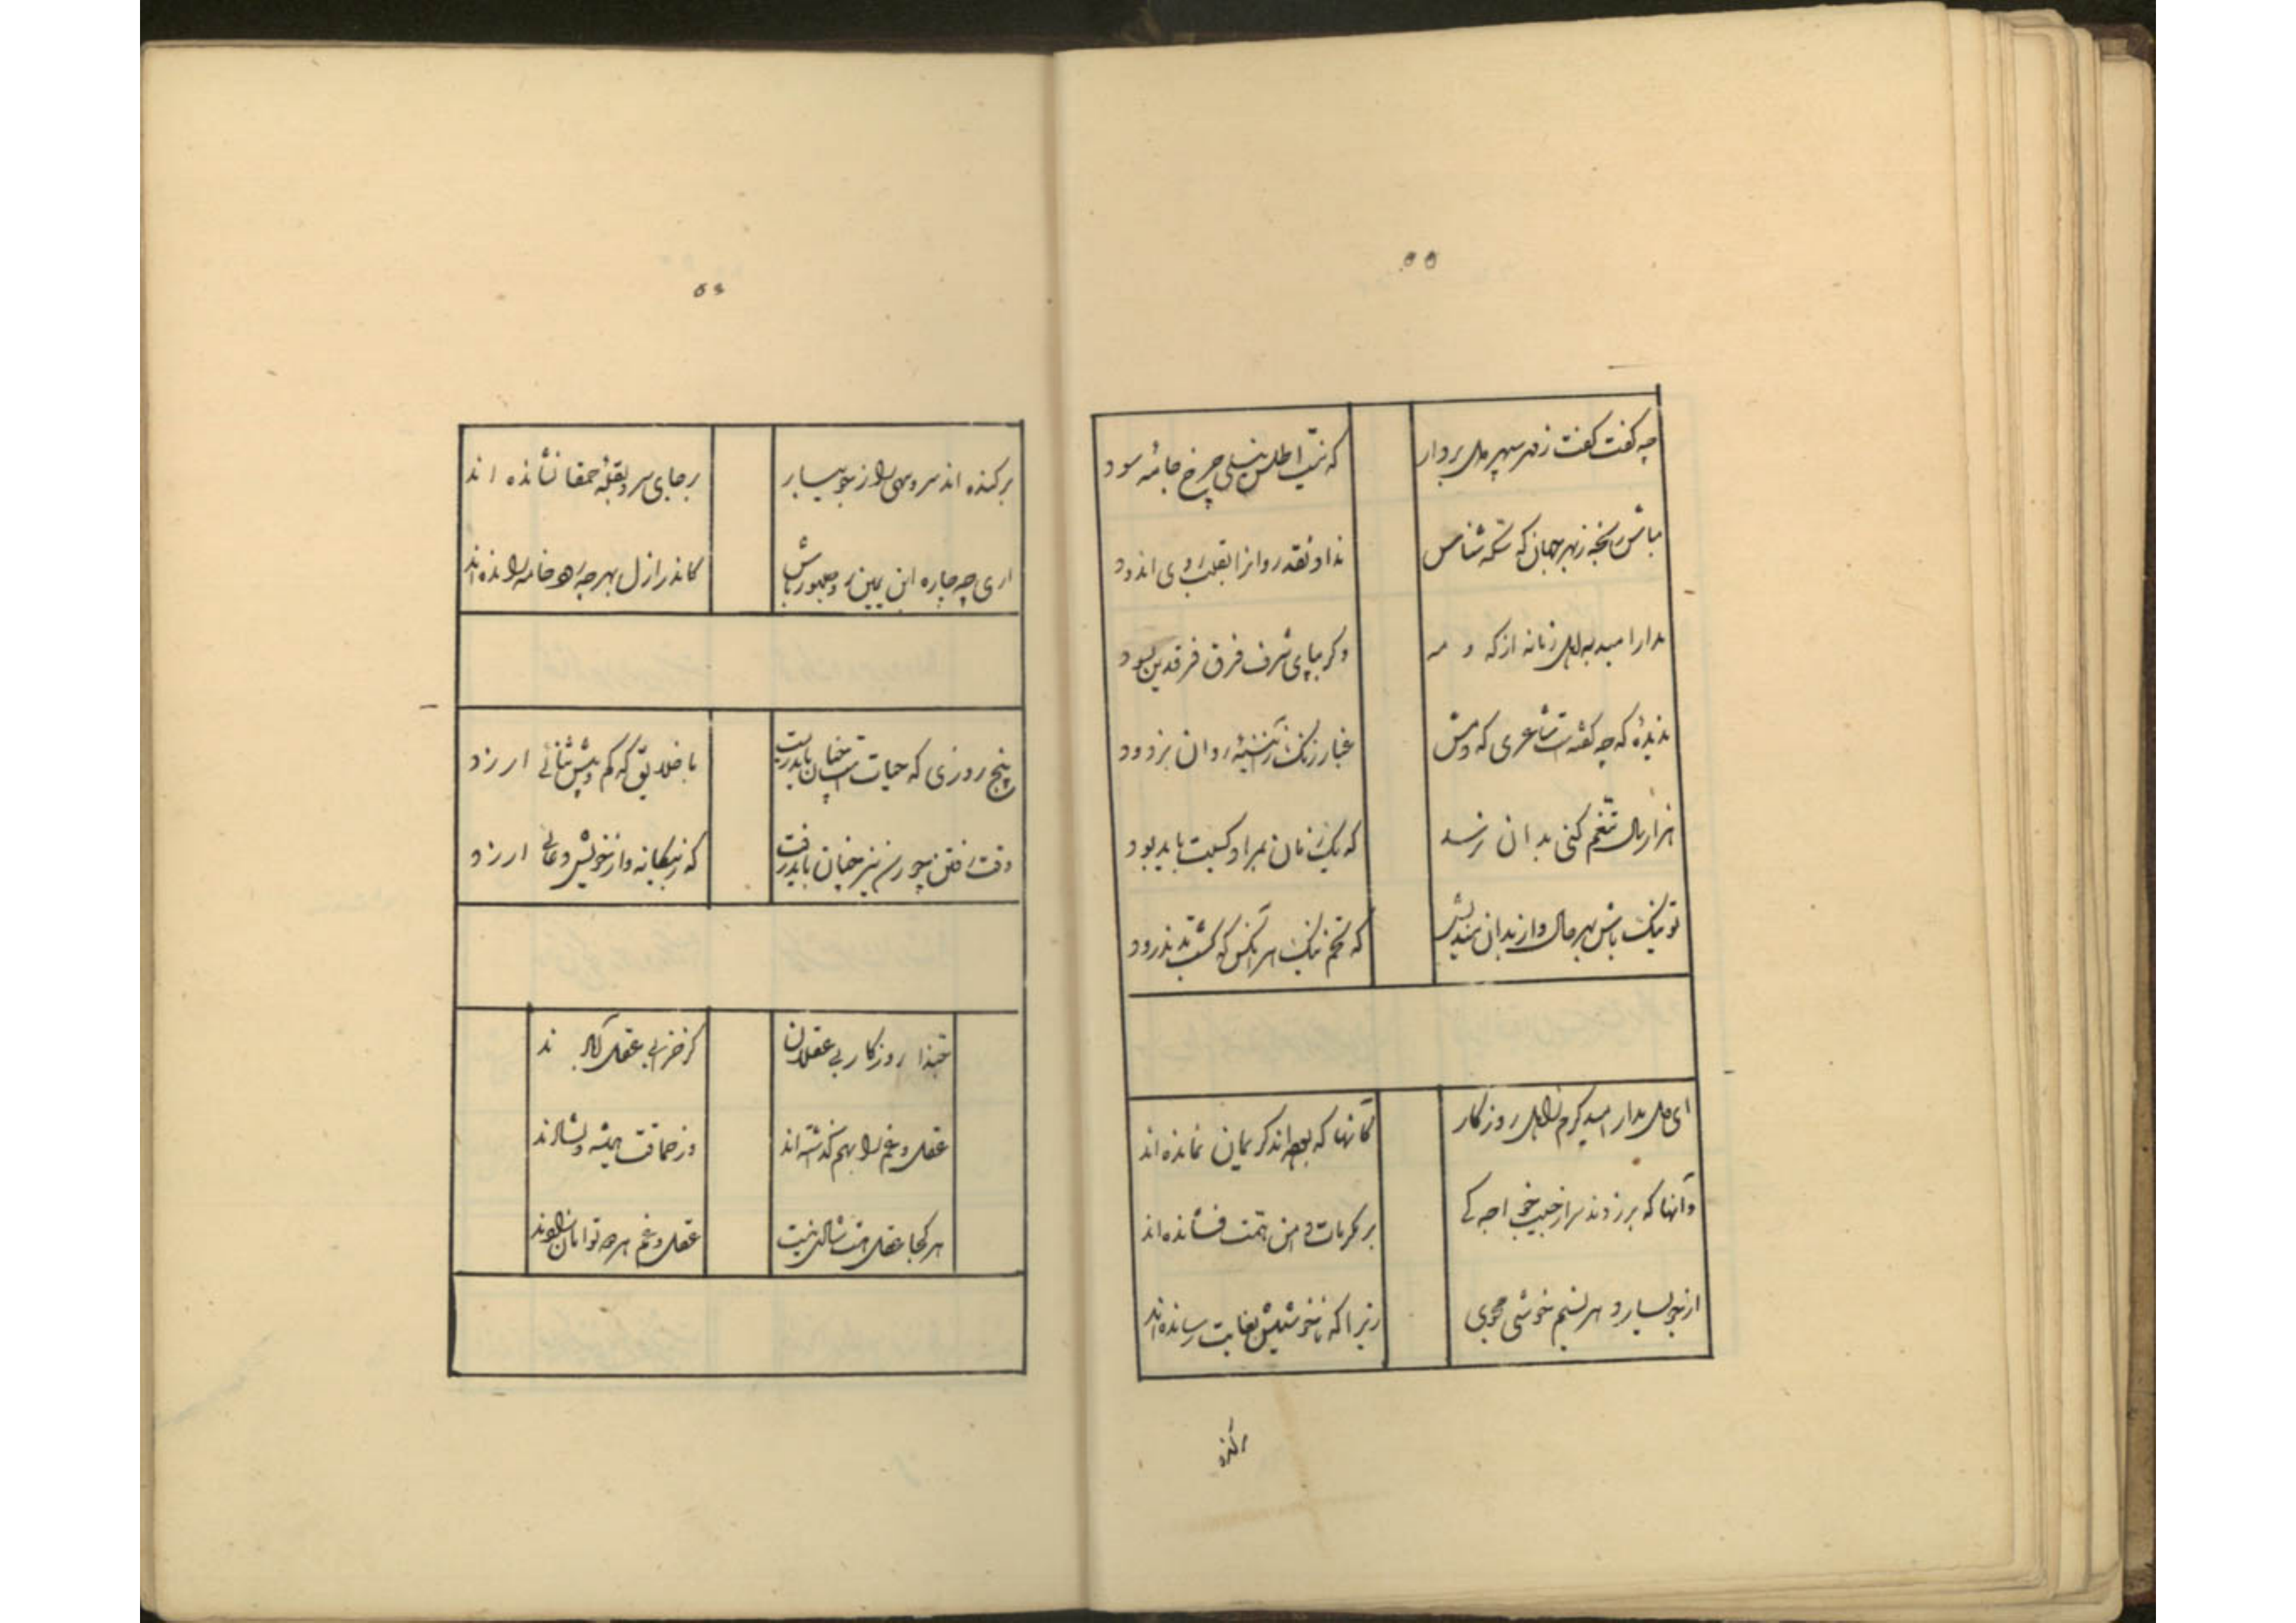 ۵۵
چه گفت گفت ز دور سپهر دل بردار
که نیست اطلس نیلی چرخ جامه سود
مباش رنجه ز بهر جهان که سکه شناس
نداد نقد روانرا بقلب روی اندود
مدار امید به اهل زمانه از که و مه
وکر بپای شرف فرق فرقدین بسود
ندیدهٔ که چه گفته است شاعری که دمش
غبار زنک ز آئینهٔ روان بزدود
هزار سال تنعم کنی بدان نرسد
که یک زمان بمراد کسیت باید بود
تو نیک باش بهر حال و از بدان مندیش
که تخم نیک هر آنکس که کشت بد ندرود
ای دل مدار امید کرم ز اهل روزکار
کانها که بوده اند کریمان نمانده اند
وآنها که برزدند سر از جیب خواجه کی
بر مکرمات دامن همت فشانده اند
از جویبار دهر نسیم خوشی مجوی
زیرا که ناخوشیش بغایت رسانده اند
برکنده
۵۶
برکنده اند سرو سهی را ز جویبار
بر جای سرو بقلهٔ حمقا نشانده اند
اری چه چاره ابن یمین رو صبور باش
کاندر ازل بهر چه رود خامه رانده اند
پنج روزی که حیات است چنان باید زیست
با خلایق که کم و بیش ثنائی ارزد
وقت رفتن چو رسد نیز چنان باید رفت
که ز بیکانه و از خویش دعائی ارزد
حبذا روزکار بی عقلان
کز خرابی عقل آبادند
عقل و غم را بهم گذاشته اند
وز حماقت همیشه دلشادند
هر کجا عقل هست شادی نیست
عقل و غم هر دو توامان زادند